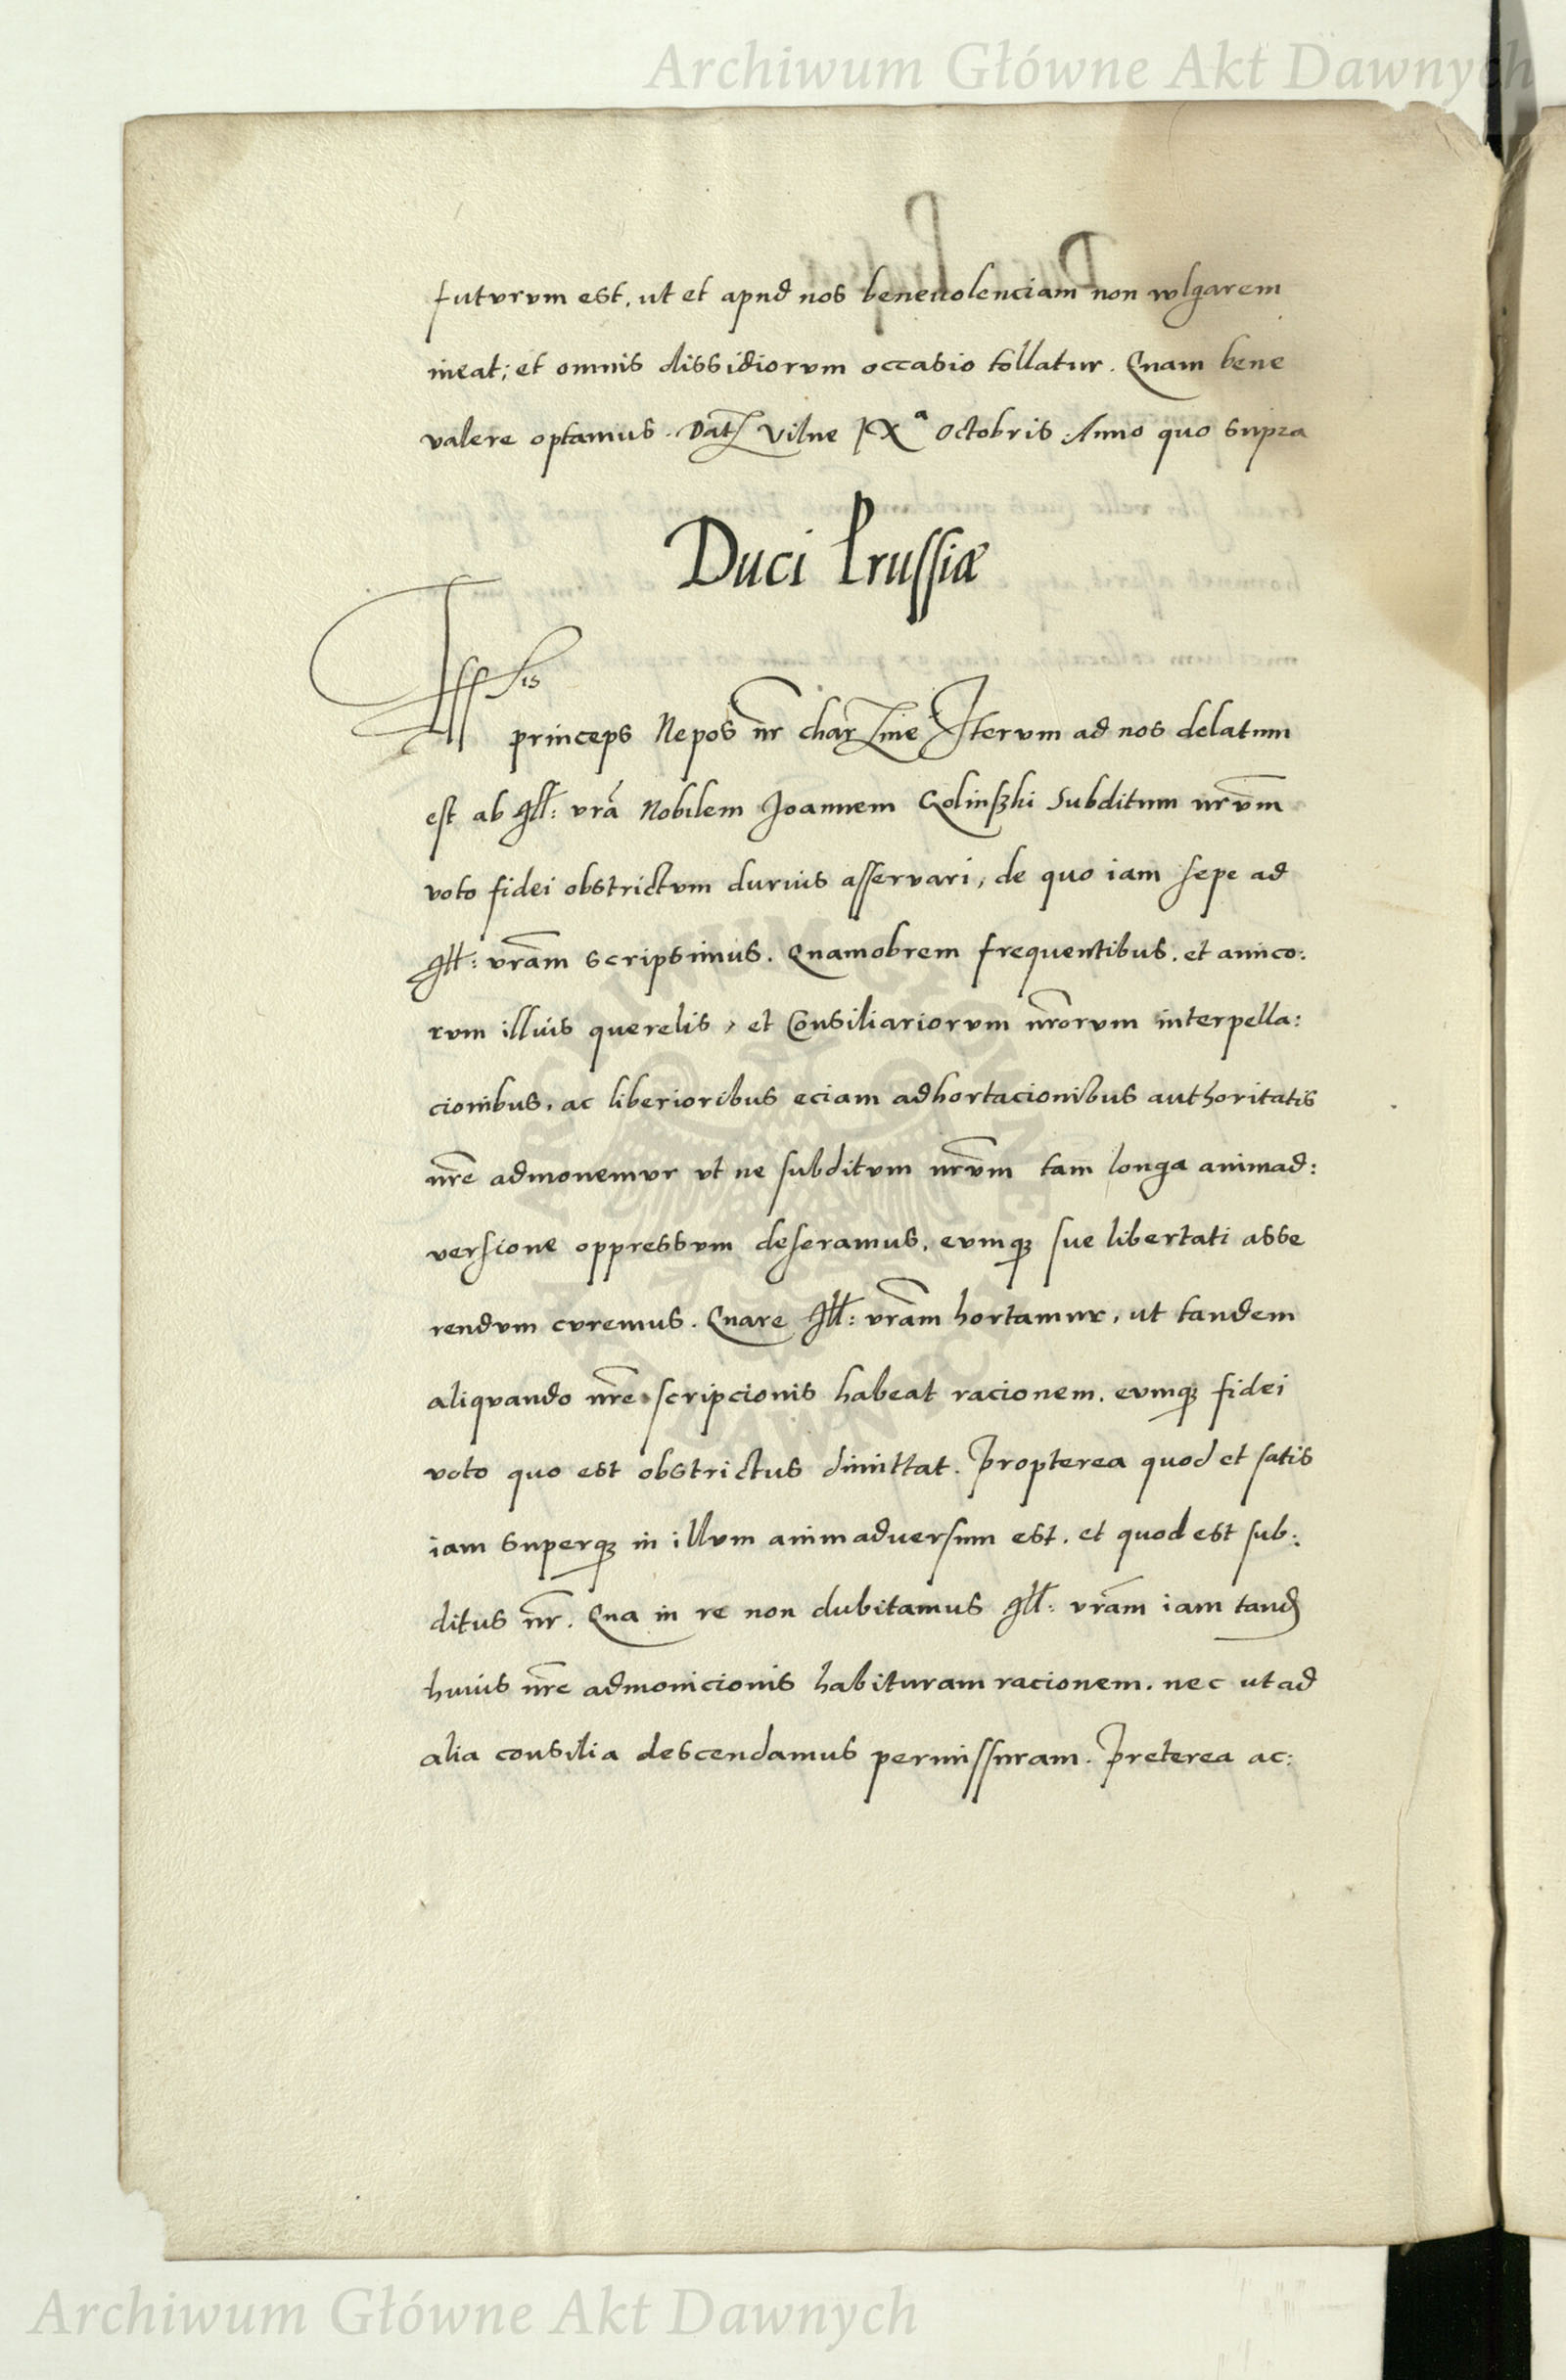 Archiwum Główne Akt Dawnych
futurum est, ut et apud nos beneuolenciam non wlgarem
ineat; et omnis dissidiorum occasio tollatur. Quam bene
valere optamus. Dat Vilne IXª Octobris Anno quo supra
Duci Prussiæ
princeps Nepos nr char Iterum ad nos delatum
est ab Ill: vrā Nobilem Joannem Golinszki Subditum nrūm
voto fidei obstrictum durius asservari, de quo iam sepe ad
Ill: vrām scripsimus. Quamobrem frequentibus, et amico:
rum illius querelis, et Consiliariorum nrōrum interpella:
cionibus, ac liberioribus eciam adhortacionibus authoritatis
nrē admonemur ut ne subditum nrūm tam longa animad:
versione oppressum deseramus, eumq; sue libertati asse
rendum curemus. Quare Ill: vrām hortamur, ut tandem
aliquando nrē scripcionis habeat racionem, eumq; fidei
voto quo est obstrictus dimittat. Propterea quod et satis
iam superq; in illum animaduersum est, et quod est sub:
ditus nr̄. Qua in re non dubitamus Ill: vrām iam tand
huius nrē admonicionis habituram racionem, nec ut ad
alia consilia descendamus permissuram. Preterea ac:
ARCHIWUM GŁÓWNE AKT DAWNYCH
Archiwum Główne Akt Dawnych